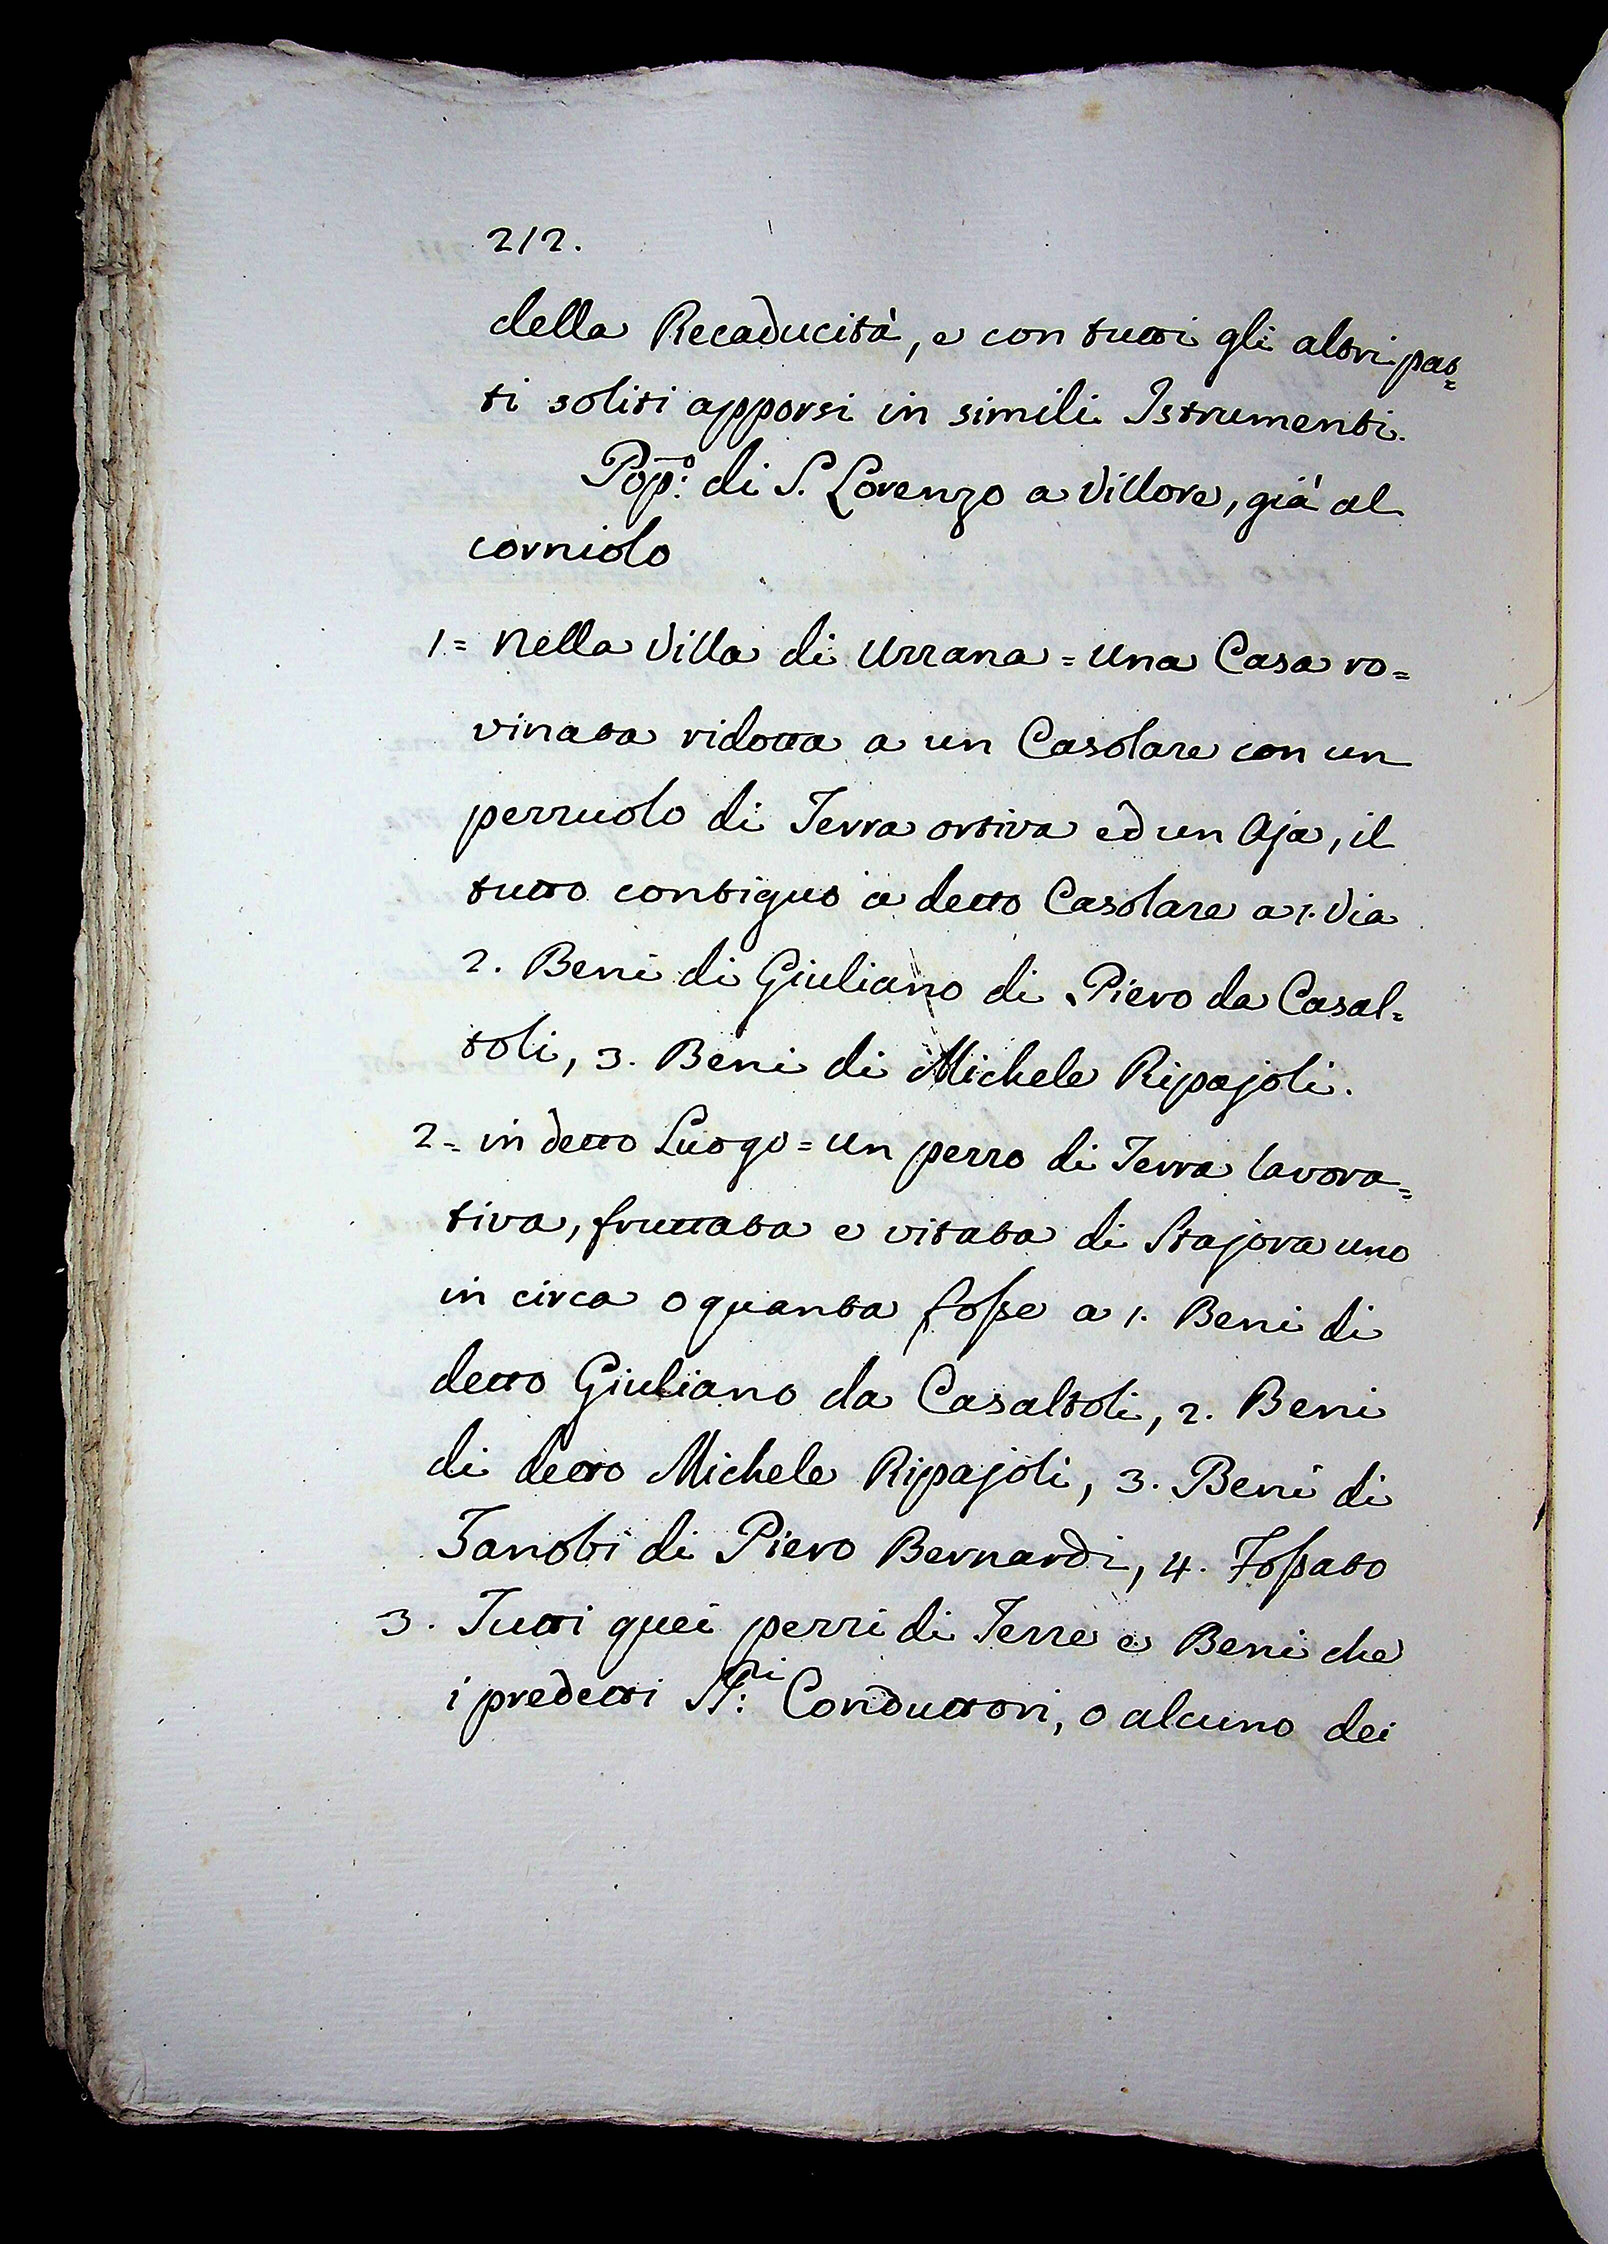 212.
della Recaducità, e con tutti gli altri pat=
ti soliti apporsi in simili Istrumenti.
Pop:º di S. Lorenzo a Villore, già al
corniolo
1= Nella Villa di Uzzana = Una Casa ro=
vinata ridotta a un Casolare con un
pezzuolo di Terra ortiva ed un Aja, il
tutto contiguo a detto Casolare a 1. Via
2. Beni di Giuliano di Piero da Casal=
toli, 3. Beni di Michele Ripajoli.
2= in detto Luogo = Un pezzo di Terra lavora=
tiva, fruttata e vitata di Stajora uno
in circa o quanta fosse a 1. Beni di
detto Giuliano da Casaltoli, 2. Beni
di detto Michele Ripajoli, 3. Beni di
Zanobi di Piero Bernardi, 4. Fossato
3. Tutti quei pezzi di Terre e Beni che
i predetti SS:ri Conduttori, o alcuno dei